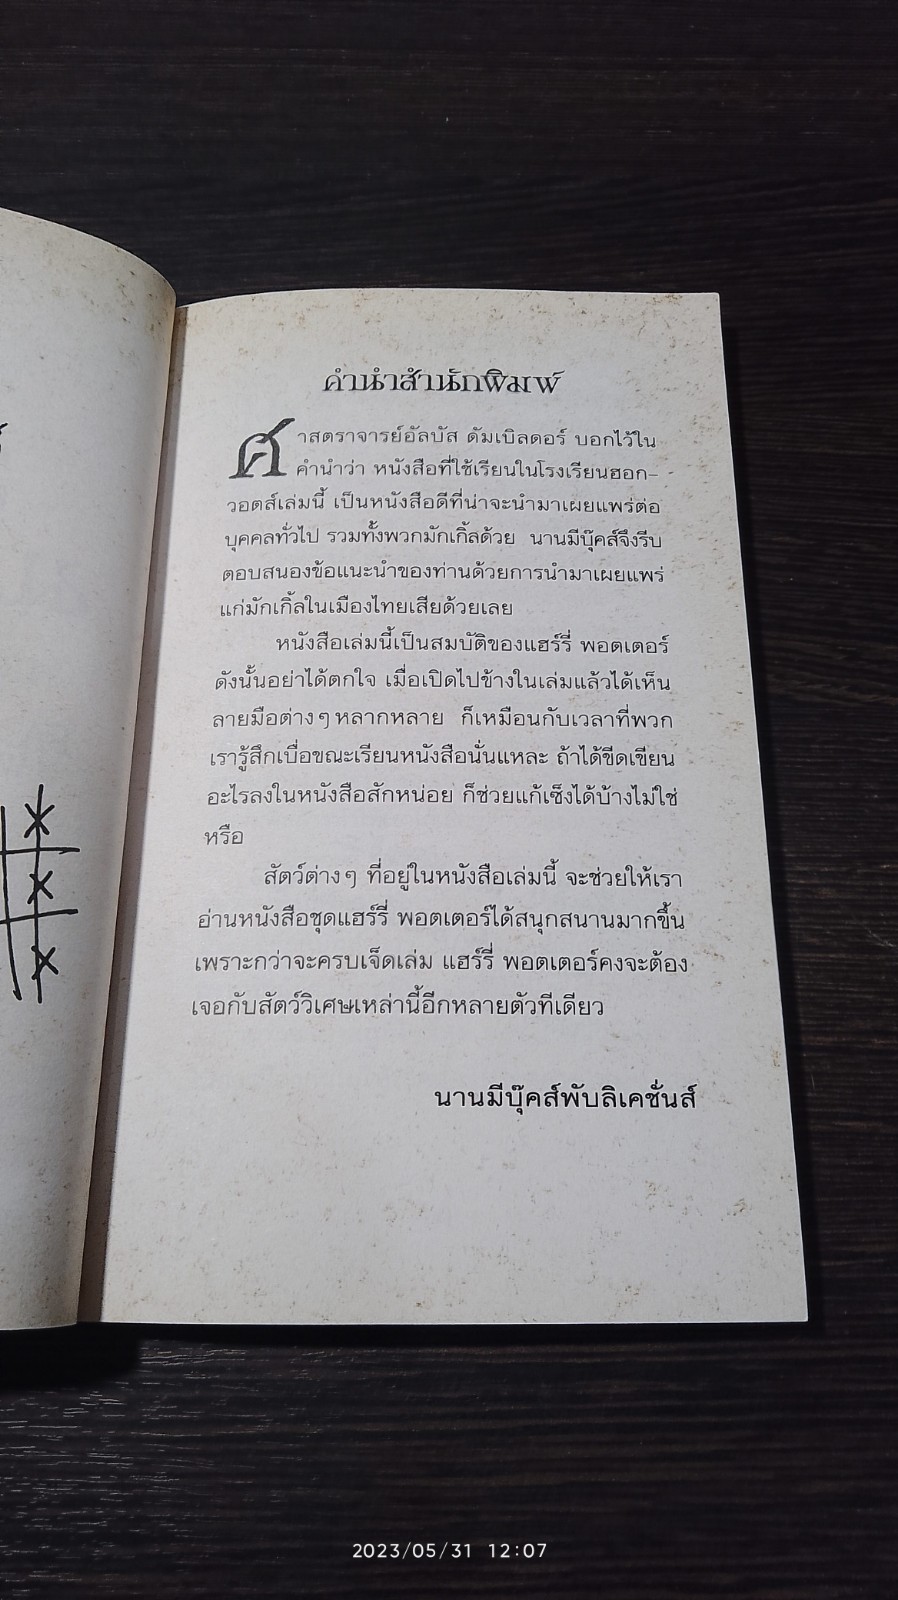 คำนำสำนักพิมพ์
ศาสตราจารย์อัลบัส ดัมเบิลดอร์ บอกไว้ใน
คำนำว่า หนังสือที่ใช้เรียนในโรงเรียนฮอก-
วอตส์เล่มนี้ เป็นหนังสือดีที่น่าจะนำมาเผยแพร่ต่อ
บุคคลทั่วไป รวมทั้งพวกมักเกิ้ลด้วย นานมีบุ๊คส์จึงรีบ
ตอบสนองข้อแนะนำของท่านด้วยการนำมาเผยแพร่
แก่มักเกิ้ลในเมืองไทยเสียด้วยเลย
หนังสือเล่มนี้เป็นสมบัติของแฮร์รี่ พอตเตอร์
ดังนั้นอย่าได้ตกใจ เมื่อเปิดไปข้างในเล่มแล้วได้เห็น
ลายมือต่างๆ หลากหลาย ก็เหมือนกับเวลาที่พวก
เรารู้สึกเบื่อขณะเรียนหนังสือนั่นแหละ ถ้าได้ขีดเขียน
อะไรลงในหนังสือสักหน่อย ก็ช่วยแก้เซ็งได้บ้างไม่ใช่
หรือ
สัตว์ต่างๆ ที่อยู่ในหนังสือเล่มนี้ จะช่วยให้เรา
อ่านหนังสือชุดแฮร์รี่ พอตเตอร์ได้สนุกสนานมากขึ้น
เพราะกว่าจะครบเจ็ดเล่ม แฮร์รี่ พอตเตอร์คงจะต้อง
เจอกับสัตว์วิเศษเหล่านี้อีกหลายตัวทีเดียว
นานมีบุ๊คส์พับลิเคชั่นส์
2023/05/31 12:07